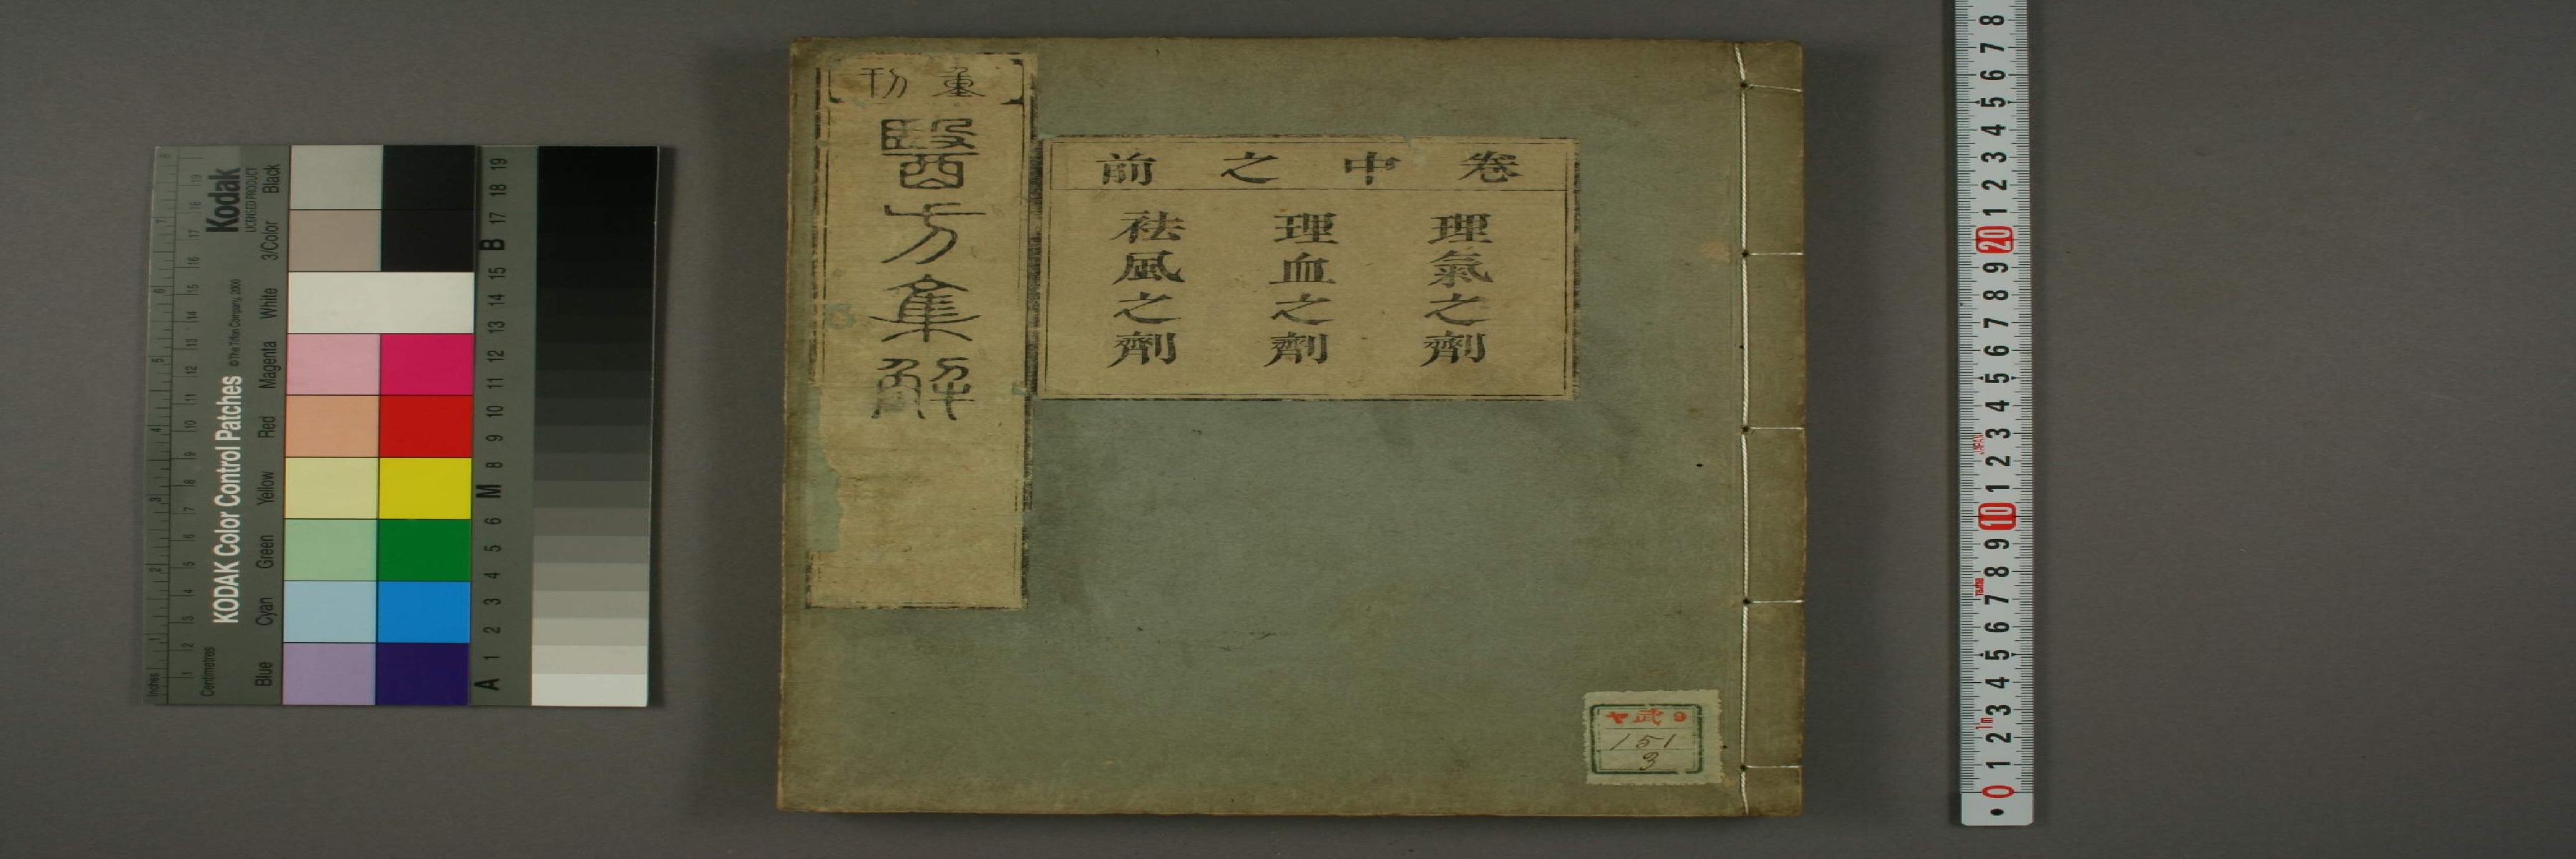 重刊
醫方集解
卷中之前
理氣之劑
理血之劑
祛風之劑
ヤ 武 9
151
3
KODAK Color Control Patches
Kodak
LICENSED PRODUCT
© The Tiffen Company, 2000
Inches
Centimetres
Blue Cyan Green Yellow Red Magenta White 3/Color Black
1 2 3 4 5 6 7 8 9 10 11 12 13 14 15 16 17 18 19
A 1 2 3 4 5 6 M 8 9 10 11 12 13 14 15 B 17 18 19
8 7 6 5 4 3 2 1 20 9 8 7 6 5 4 3 2 1 10 9 8 7 6 5 4 3 2 1 0
JAPAN
1m